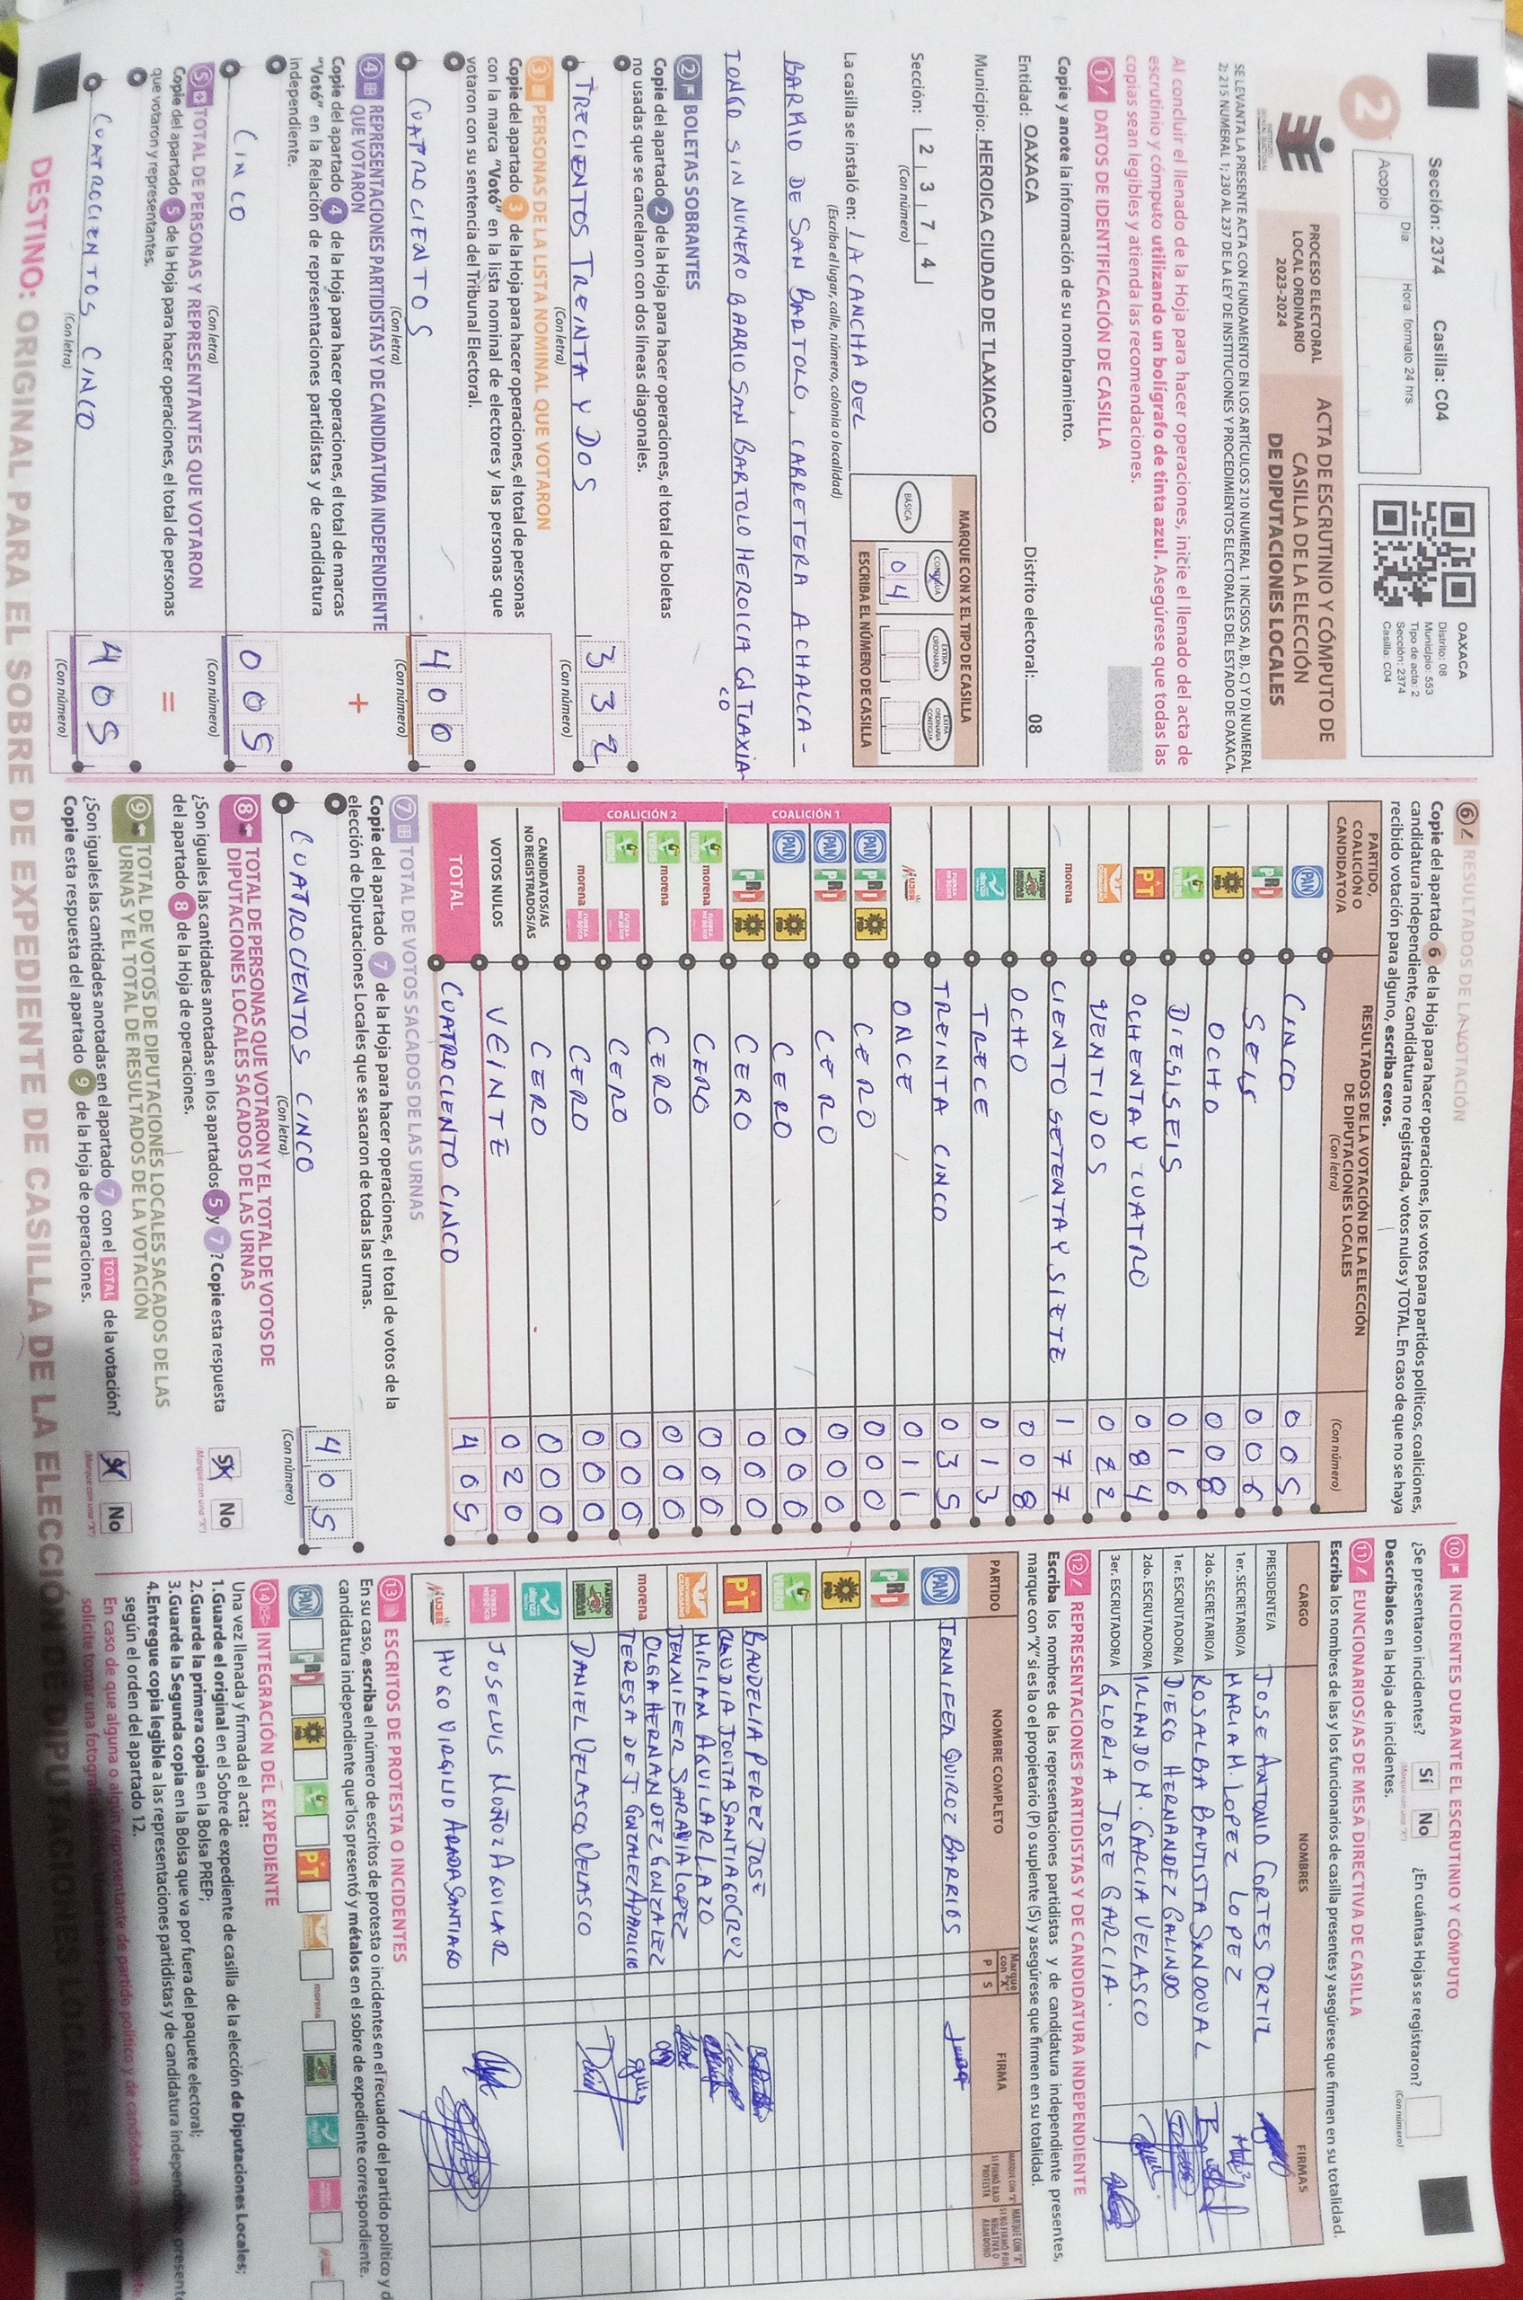 Sección: 2374 Casilla: C04
Día Hora: formato 24 hrs.
Acopio
OAXACA
Distrito: 08
Municipio: 553
Tipo de acta: 2
Sección: 2374
Casilla: C04
2
PROCESO ELECTORAL
LOCAL ORDINARIO
2023-2024
ACTA DE ESCRUTINIO Y CÓMPUTO DE
CASILLA DE LA ELECCIÓN
DE DIPUTACIONES LOCALES
SE LEVANTA LA PRESENTE ACTA CON FUNDAMENTO EN LOS ARTÍCULOS 210 NUMERAL 1 INCISOS A), B), C) Y D) NUMERAL
2; 215 NUMERAL 1; 230 AL 237 DE LA LEY DE INSTITUCIONES Y PROCEDIMIENTOS ELECTORALES DEL ESTADO DE OAXACA.
Al concluir el llenado de la Hoja para hacer operaciones, inicie el llenado del acta de
escrutinio y cómputo utilizando un bolígrafo de tinta azul. Asegúrese que todas las
copias sean legibles y atienda las recomendaciones.
1 DATOS DE IDENTIFICACIÓN DE CASILLA
Copie y anote la información de su nombramiento.
Entidad: OAXACA Distrito electoral: 08
Municipio: HEROICA CIUDAD DE TLAXIACO
Sección: 2 3 7 4
(Con número)
MARQUE CON X EL TIPO DE CASILLA
BÁSICA CONTIGUA EXTRA ORDINARIA EXTRA ORDINARIA CONTIGUA
04
ESCRIBA EL NÚMERO DE CASILLA
La casilla se instaló en: LA CANCHA DEL
(Escriba el lugar, calle, número, colonia o localidad)
BARRIO DE SAN BARTOLO, CARRETERA A CHALCA-
TONGO SIN NUMERO BARRIO SAN BARTOLO HEROICA CD TLAXIA-
CO
2 BOLETAS SOBRANTES
Copie del apartado 2 de la Hoja para hacer operaciones, el total de boletas
no usadas que se cancelaron con dos líneas diagonales.
TRECIENTOS TREINTA Y DOS 332
(Con letra) (Con número)
3 PERSONAS DE LA LISTA NOMINAL QUE VOTARON
Copie del apartado 3 de la Hoja para hacer operaciones, el total de personas
con la marca "Votó" en la lista nominal de electores y las personas que
votaron con su sentencia del Tribunal Electoral.
CUATROCIENTOS 400
(Con letra) (Con número)
4 REPRESENTACIONES PARTIDISTAS Y DE CANDIDATURA INDEPENDIENTE
QUE VOTARON
Copie del apartado 4 de la Hoja para hacer operaciones, el total de marcas
"Votó" en la Relación de representaciones partidistas y de candidatura
independiente.
+
CINCO 005
(Con letra) (Con número)
5 TOTAL DE PERSONAS Y REPRESENTANTES QUE VOTARON
Copie del apartado 5 de la Hoja para hacer operaciones, el total de personas
que votaron y representantes.
=
CUATROCIENTOS CINCO 405
(Con letra) (Con número)
6 RESULTADOS DE LA VOTACIÓN
Copie del apartado 6 de la Hoja para hacer operaciones, los votos para partidos políticos, coaliciones,
candidatura independiente, candidatura no registrada, votos nulos y TOTAL. En caso de que no se haya
recibido votación para alguno, escriba ceros.
PARTIDO, COALICIÓN O CANDIDATO/A
RESULTADOS DE LA VOTACIÓN DE LA ELECCIÓN DE DIPUTACIONES LOCALES
(Con letra) (Con número)
PAN CINCO 005
PRI SEIS 006
PRD OCHO 008
VERDE DIESISEIS 016
PT OCHENTA Y CUATRO 084
VENTIDOS 022
morena CIENTO SETENTA Y SIETE 177
OCHO 008
TRECE 013
TREINTA CINCO 035
MUJER ONCE 011
COALICIÓN 1
PAN PRI PRD CERO 000
PAN PRI CERO 000
PAN PRD CERO 000
PRI PRD CERO 000
COALICIÓN 2
VERDE morena CERO 000
VERDE morena CERO 000
VERDE CERO 000
morena CERO 000
CANDIDATOS/AS NO REGISTRADOS/AS CERO 000
VOTOS NULOS VEINTE 020
TOTAL CUATROCIENTO CINCO 405
7 TOTAL DE VOTOS SACADOS DE LAS URNAS
Copie del apartado 7 de la Hoja para hacer operaciones, el total de votos de la
elección de Diputaciones Locales que se sacaron de todas las urnas.
CUATROCIENTOS CINCO 405
(Con letra) (Con número)
8 TOTAL DE PERSONAS QUE VOTARON Y EL TOTAL DE VOTOS DE
DIPUTACIONES LOCALES SACADOS DE LAS URNAS
¿Son iguales las cantidades anotadas en los apartados 5 y 7? Copie esta respuesta
del apartado 8 de la Hoja de operaciones.
Sí No
9 TOTAL DE VOTOS DE DIPUTACIONES LOCALES SACADOS DE LAS
URNAS Y EL TOTAL DE RESULTADOS DE LA VOTACIÓN
¿Son iguales las cantidades anotadas en el apartado 7 con el TOTAL de la votación?
Copie esta respuesta del apartado 9 de la Hoja de operaciones.
Sí No
10 INCIDENTES DURANTE EL ESCRUTINIO Y CÓMPUTO
¿Se presentaron incidentes? Sí No ¿En cuántas Hojas se registraron?
(Con número)
Descríbalos en la Hoja de incidentes.
11 FUNCIONARIOS/AS DE MESA DIRECTIVA DE CASILLA
Escriba los nombres de las y los funcionarios de casilla presentes y asegúrese que firmen en su totalidad.
CARGO NOMBRES FIRMAS
PRESIDENTE/A JOSE ANTONIO CORTES ORTIZ
1er. SECRETARIO/A MARIA M. LOPEZ LOPEZ
2do. SECRETARIO/A ROSALBA BAUTISTA SANDOVAL
1er. ESCRUTADOR/A DIEGO HERNANDEZ GALINDO
2do. ESCRUTADOR/A IRLANDO M. GARCIA VELASCO
3er. ESCRUTADOR/A GLORIA JOSE GARCIA.
12 REPRESENTACIONES PARTIDISTAS Y DE CANDIDATURA INDEPENDIENTE
Escriba los nombres de las representaciones partidistas y de candidatura independiente presentes,
marque con "X" si es la o el propietario (P) o suplente (S) y asegúrese que firmen en su totalidad.
PARTIDO NOMBRE COMPLETO Marque con "X" P S FIRMA
PAN JENNIFER QUIROZ BARRIOS
PRI
PRD
VERDE BAUDELIA PEREZ JOSE
PT CLAUDIA JOVITA SANTIAGO CRUZ
MIRIAM AGUILAR LAZO
JENNIFER SARABIA LOPEZ
morena OLGA HERNANDEZ GONZALEZ
TERESA DE J. GONZALEZ APARICIO
DANIEL VELASCO VELASCO
JOSE LUIS MUÑOZ AGUILAR
MUJER HUGO VIRGILIO APARICIO SANTIAGO
13 ESCRITOS DE PROTESTA O INCIDENTES
En su caso, escriba el número de escritos de protesta o incidentes en el recuadro del partido político y
candidatura independiente que los presentó y métalos en el sobre de expediente correspondiente.
PAN PRI PRD VERDE PT morena
14 INTEGRACIÓN DEL EXPEDIENTE
Una vez llenada y firmada el acta:
1. Guarde el original en el Sobre de expediente de casilla de la elección de Diputaciones Locales;
2. Guarde la primera copia en la Bolsa PREP;
3. Guarde la Segunda copia en la Bolsa que va por fuera del paquete electoral;
4. Entregue copia legible a las representaciones partidistas y de candidatura
según el orden del apartado 12.
En caso de que alguna o algún representante de partido político y de candidatura
solicite tomar una
DESTINO: ORIGINAL PARA EL SOBRE DE EXPEDIENTE DE CASILLA DE LA ELECCIÓN DE DIPUTACIONES LOCALES